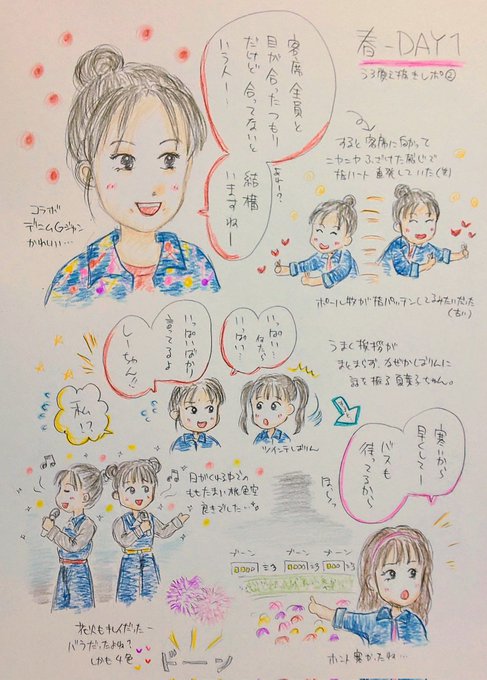 春-DAY1
うろ覚え抜きレポ②
客席全員と
目が合ったつもり
だけど合ってないと
いう人ー！
よぉー？
結構
いますねー
コラボ
デニムGジャン
かわいい…
すると客席に向かって
ニヤニヤふざけた感じで
指ハート直発していた(笑)
ポール牧が指パッチンしてるみたいだった
(古い)
いっぱい…
いっぱい…
いっぱいばかり
言ってるよ
しーちゃん!!
私!?
ツインテしおりん
うまく挨拶が
まとまらず、なぜかしおりんに
話を振る夏菜子ちゃん。
寒いから
早くしてー
バスも
待ってるから
ほらっ
日がくれるころの
ももたまい桃色空
良きでした…
ブーン
ブーン
ブーン
花火もキレイだったー
バラだったよね?
しかも4色
ドーン
ホント寒かったね…